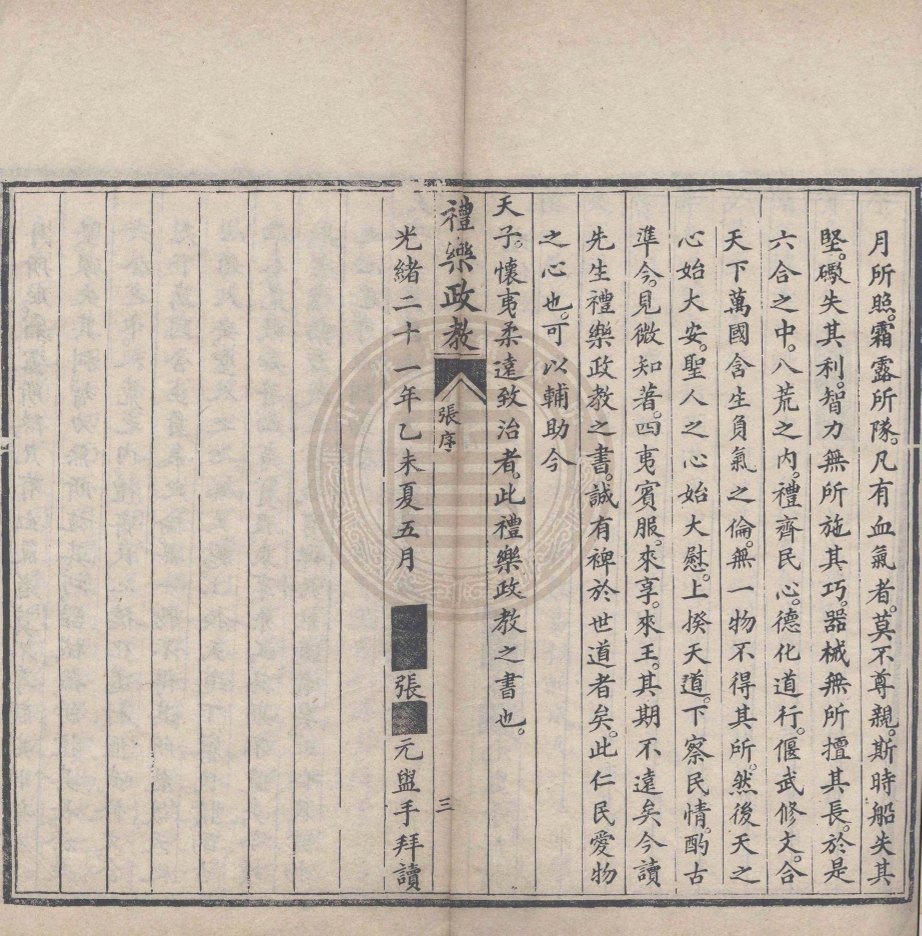 月所照。霜露所隊。凡有血氣者。莫不尊親。斯時船失其
堅。礮失其利。智力無所施其巧。器械無所擅其長。於是
六合之中。八荒之內。禮齊民心。德化道行。偃武修文。合
天下萬國含生負氣之倫。無一物不得其所。然後天之
心始大安。聖人之心始大慰。上揆天道。下察民情。酌古
準今。見微知著。四夷賓服。來享。來王。其期不遠矣今讀
先生禮樂政教之書。誠有裨於世道者矣。此仁民愛物
之心也。可以輔助今
天子。懷夷柔遠致治者。此禮樂政教之書也。
禮樂政教
張序
三
光緒二十一年乙未夏五月
張
元盥手拜讀